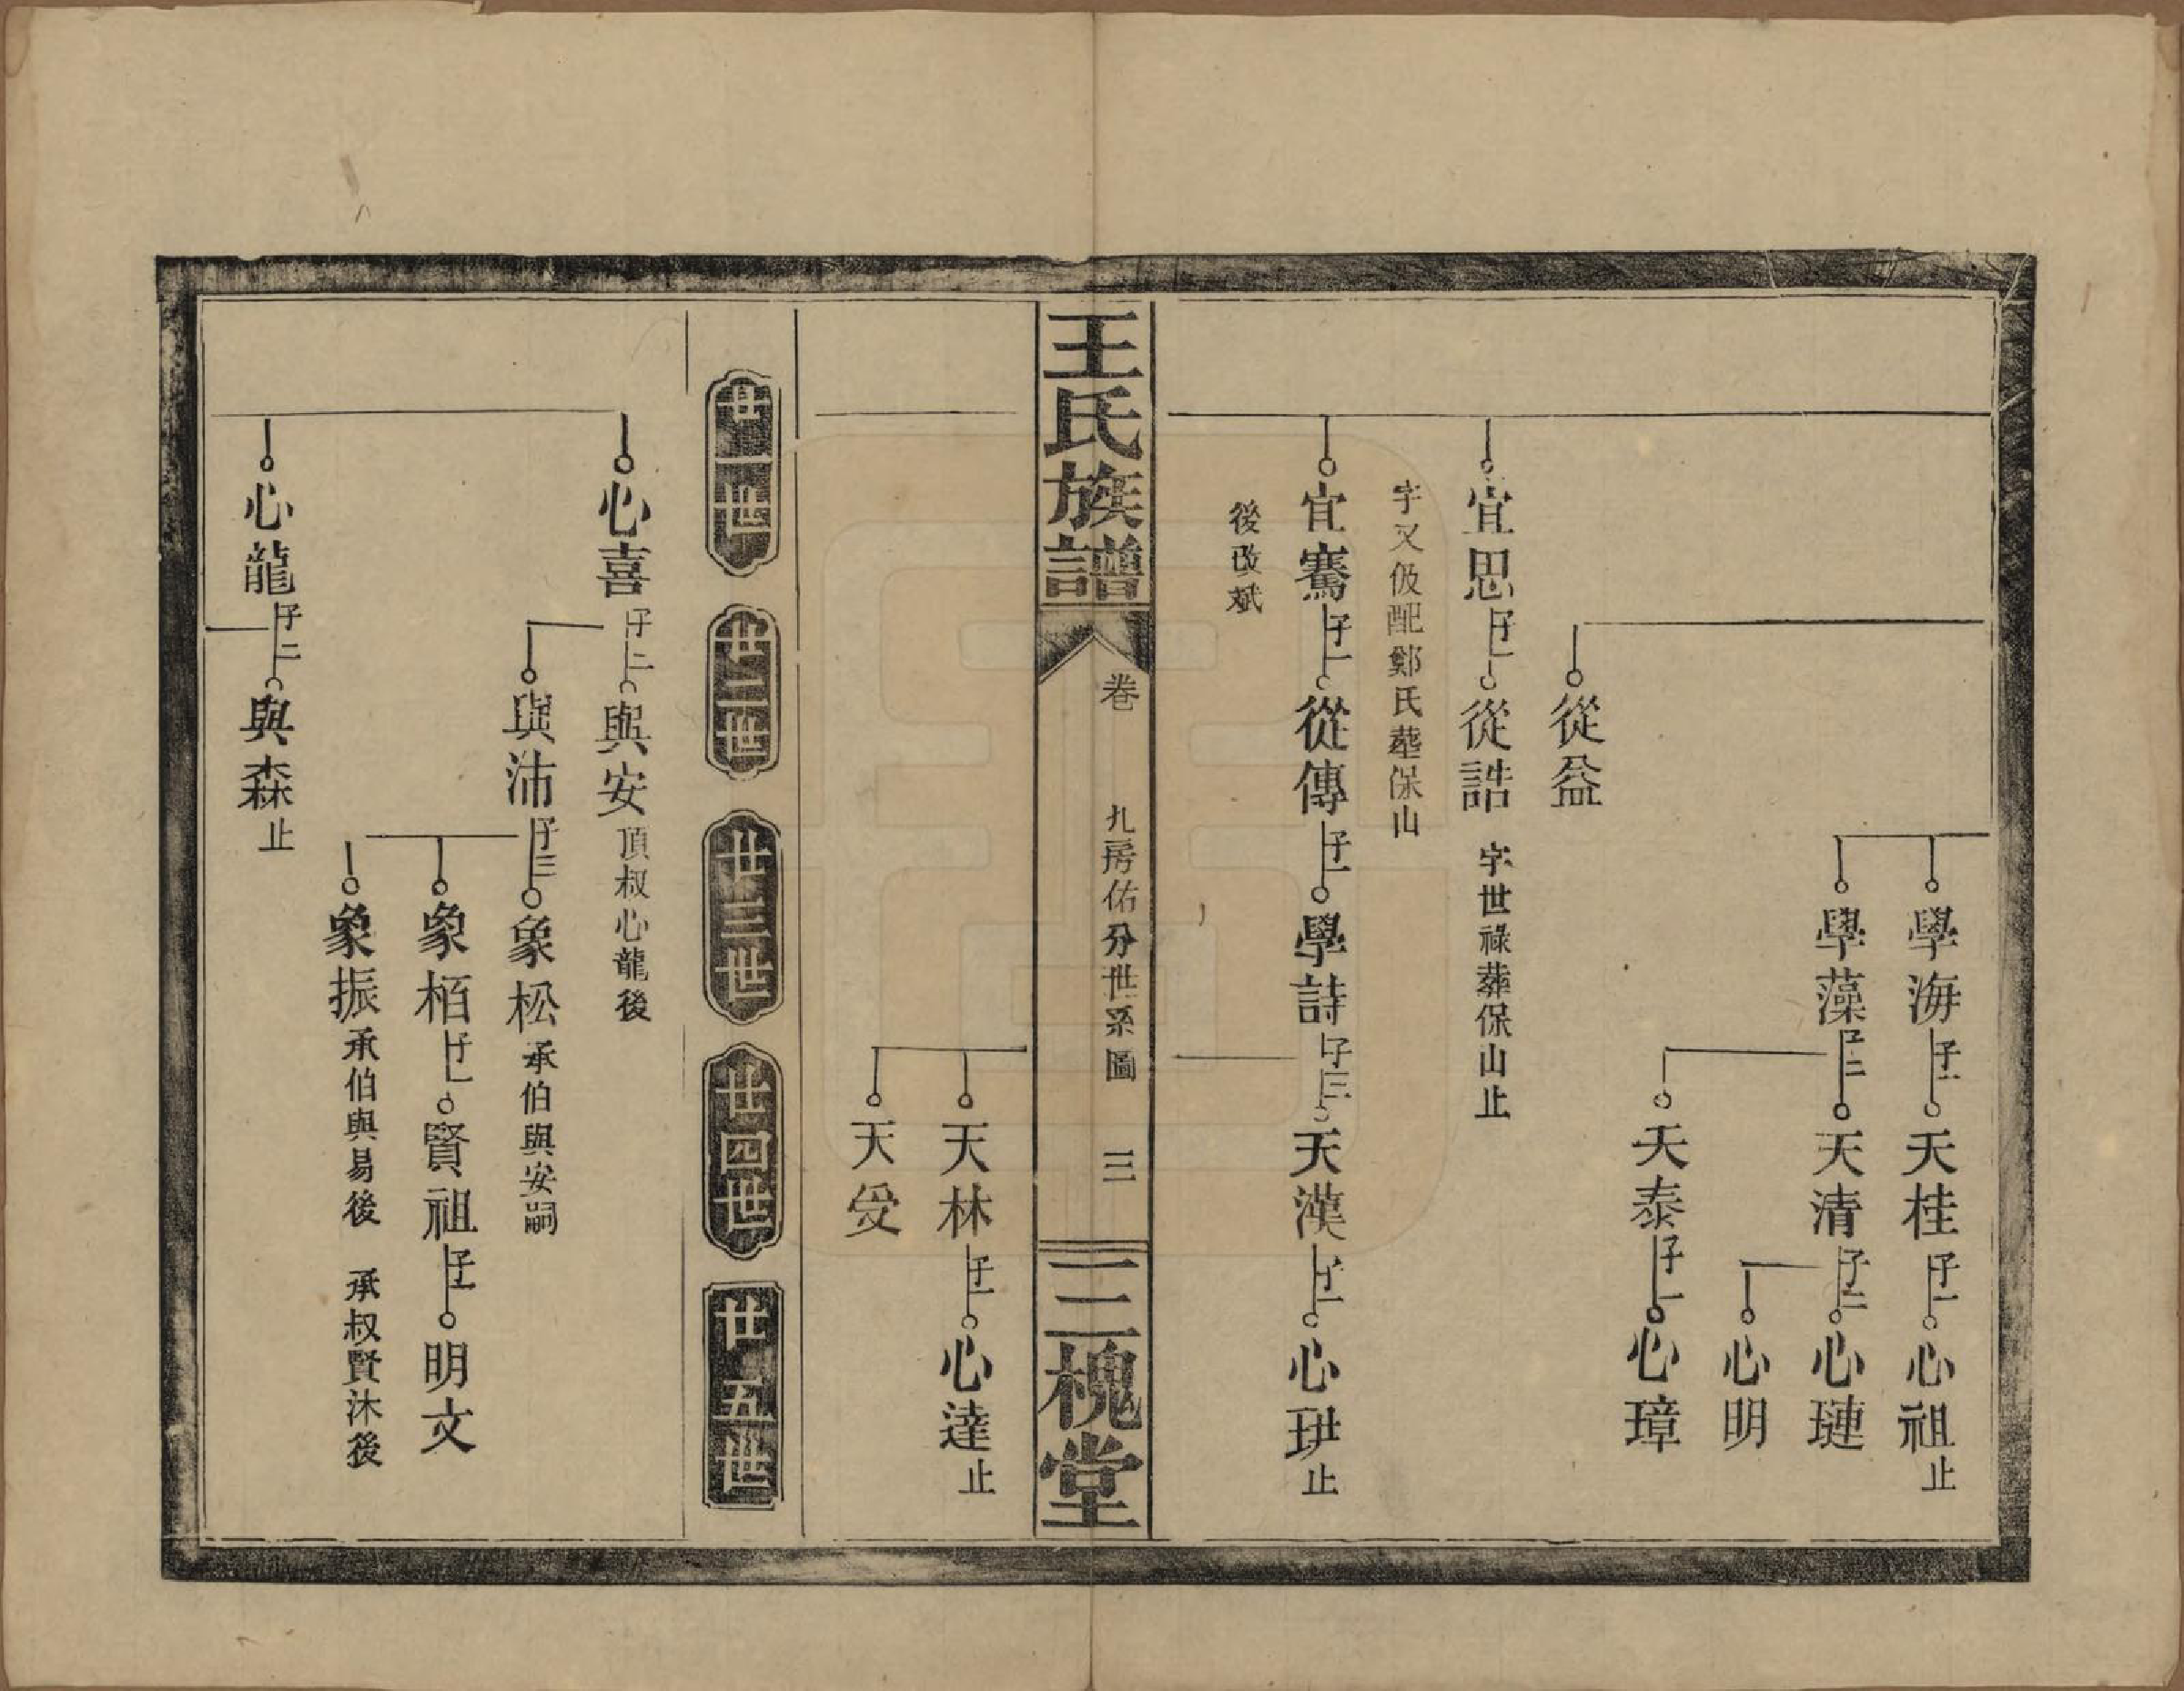 學海子一天桂子一心祖止
學藻子二天清子二心璉
心明
天泰子一心璋
從益
宜思子一從誥字世祿葬保山止
字又伋配鄭氏墓保山
宜騫子一從傳子一學詩子三天漢子一心珙止
後改斌
王氏族譜
卷
九房佑分世系圖
三
三槐堂
天林子一心達止
天受
廿一世
廿二世
廿三世
廿四世
廿五世
心喜子二與安頂叔心龍後
與沛子三象松承伯與安嗣
象栢子一賢祖子一明文
象振承伯與易後 承叔賢沐後
心龍子二與森止